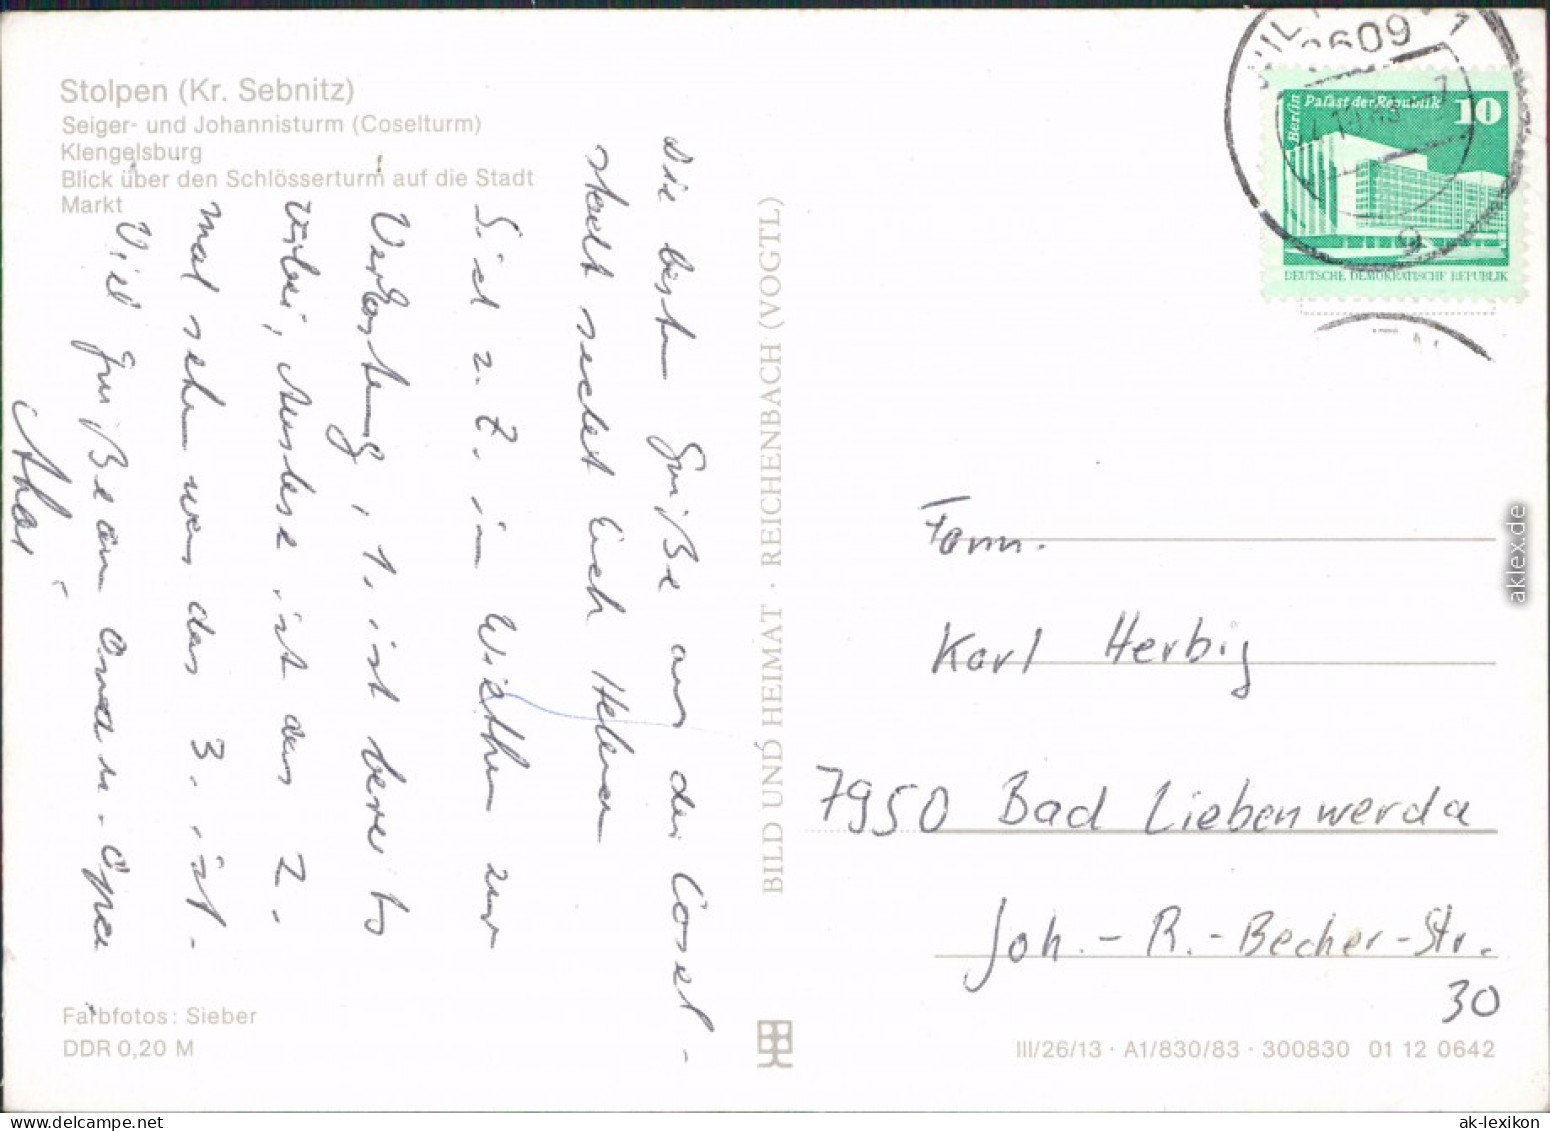 Stolpen (Kr. Sebnitz)
Seiger- und Johannisturm (Coselturm)
Klengelsburg
Blick über den Schlösserturm auf die Stadt
Markt
Die besten Grüße aus der Cosel-
stadt sendet Euch Helmar
Sind z. Z. in Wilthen zur
Verkostung, 1. ist bereits
vorbei, Auslese ist der 2.
mal sehn was das 3. ist.
Viel Grüße an Oma u. Opa
Farbfotos: Sieber
DDR 0,20 M
BILD UND HEIMAT · REICHENBACH (VOGTL)
9609
1
Berlin
Palast der Republik
10
DEUTSCHE DEMOKRATISCHE REPUBLIK
g
Fam.
Karl Herbig
7950 Bad Liebenwerda
Joh.-R.-Becher-Str.
30
III/26/13 · A1/830/83 · 300830 01 12 0642
aklex.de
ak-lexikon.com